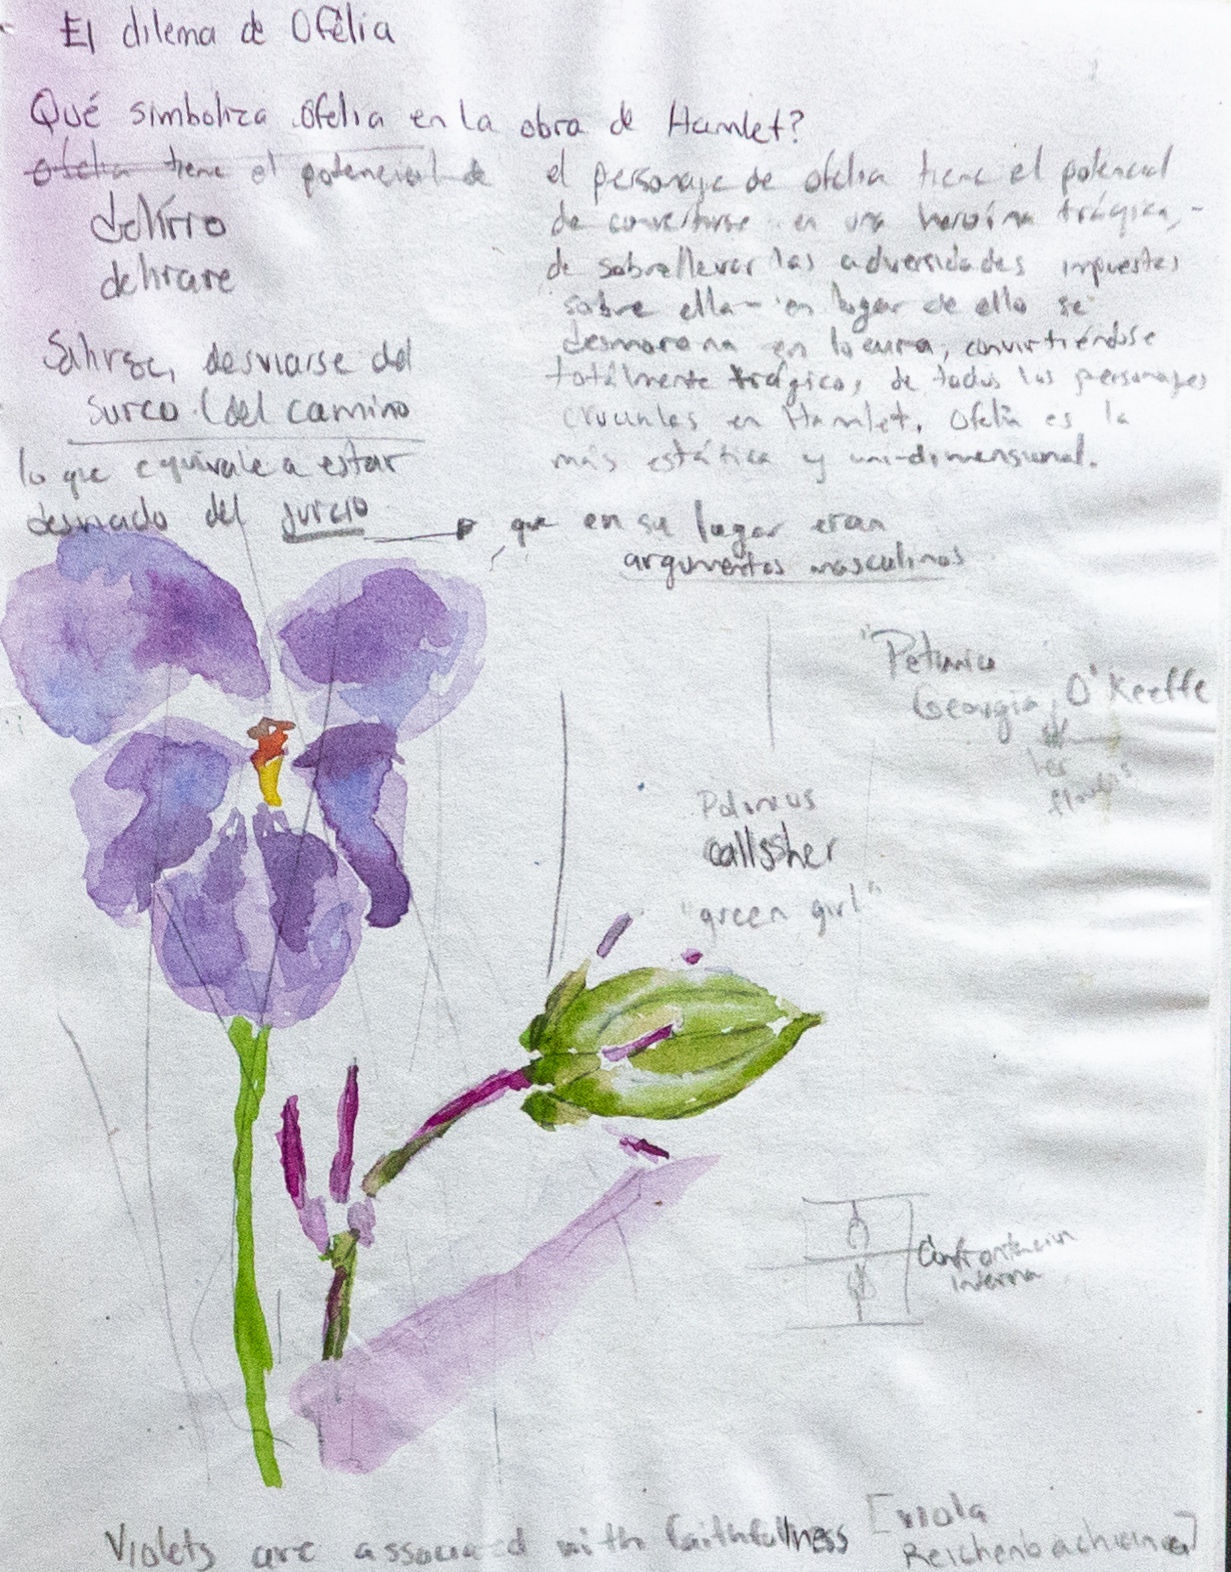 El dilema de Ofelia
Qué simboliza Ofelia en la obra de Hamlet?
Ofelia tiene el potencial de
delirio
delirare
Salirse, desviarse del
surco (del camino
lo que equivale a estar
desviado del juicio
el personaje de ofelia tiene el potencial
de convertirse en una heroína trágica,-
de sobrellevar las adversidades impuestas
sobre ella - en lugar de ello se
desmorona en locura, convirtiéndose
totálmente trágico, de todos los personajes
cruciales en Hamlet, Ofelia es la
más estática y uni-dimensional.
que en su lugar eran
argumentos masculinos
Georgia O'Keeffe
her
flowers
Polonius
calls her
"green girl"
Confrontacion
interna
Violets are associated with faithfullness
[viola